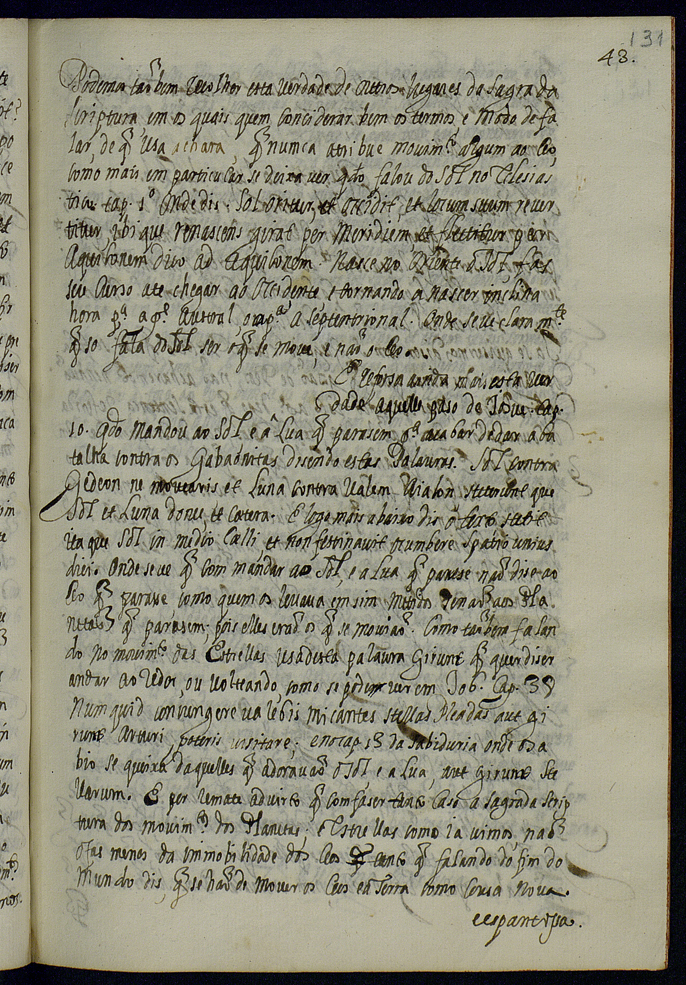 131
48.
Poderia tãobem recolher esta verdade de outros lugares da sagrada
scriptura em os quais quem conciderar bem os termos e modo de fa
lar, de q̃ usa achara, q̃ nunca atribue movimto algum ao Ceo,
como mais em particular se deixa ver qdo falou do Sol no Eclesias
tico cap. 1º onde dis. Sol oritur et occidit, et locum suum rever
titur ibi que renascens girat per Meridiem et flectitur per
Aquilonem duo ad Aquilonem. Nasce no Oriente o Sol fas
seu curso ate chegar ao Occidente e tornando a nascer inclina
hora pa a pte Austral, ora pa a septentrional. Onde se ve claramte
q̃ so fala do Sol ser o q̃ se move, e não o Ceo.
E reforsa ainda mais esta ver
dade aquelle paso de Josue cap.
10. qdo mandou ao Sol e â Lua q̃ parasem pa acabar de dar a ba
talha contra os Gabaonitas disendo estas Palavras. Sol contra
Gedeon ne movearis et Luna contra Valem Aialon steterunt que
Sol et Luna donec et cætera. E logo mais abaixo dis o texto stetit
ita que Sol in medio Cælli et non festinavit occumbere spatio unius
diei. Onde se ve q̃ com mandar ao Sol, e a Lua q̃ parase não dise ao
Ceo q̃ parasse como quem os levava em sim mesmo senão aos Pla
netas q̃ parasem, pois elles erão os q̃ se movião. Como tãobem falan
do no movimto das Estrellas usa desta palaura Girunt q̃ quer diser
andar ao redor, ou volteando, como se podem ver em Job. Cap. 38
Numquid coniungere valebis micantes stellas Pleadas aut gi
rum Arturi poteris
da Sabiduria onde o sa
bio se queixa daquelles q̃ adoravão o Sol e a Lua, aut girum ste
llarum. E per remate advirto q̃ com faser tanto caso a Sagrada Scrip
tura dos movimtos dos Planetas, e Estrellas como ia vimos, não
o fas menos da immobilidade dos Ceos tanto q̃ falando do fim do
Mundo dis, q̃ se hão de mover os Ceos e a Terra como cousa nova.
e espantosa.